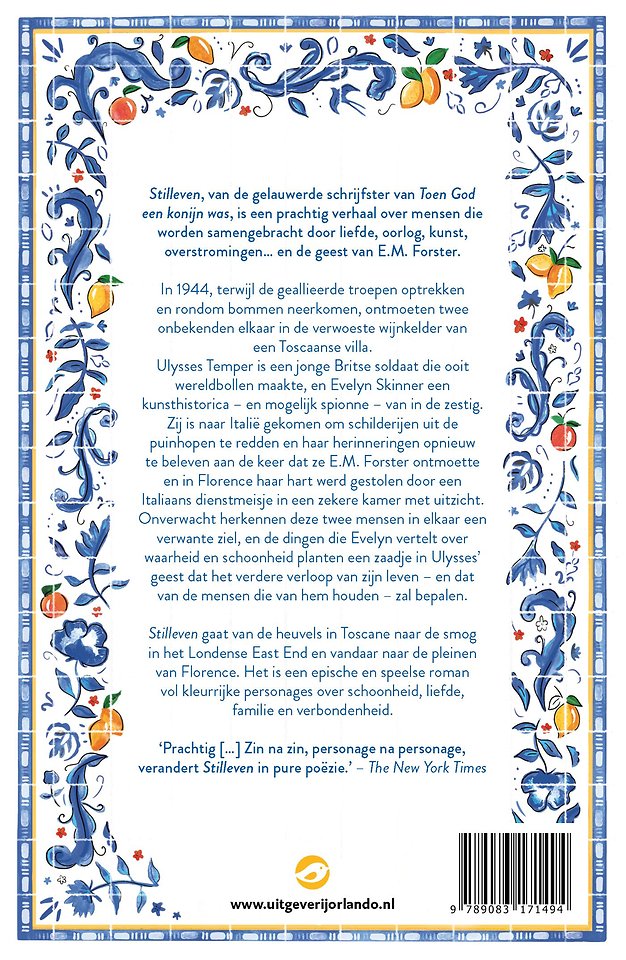 Stilleven, van de gelauwerde schrijfster van Toen God
een konijn was, is een prachtig verhaal over mensen die
worden samengebracht door liefde, oorlog, kunst,
overstromingen... en de geest van E.M. Forster.
In 1944, terwijl de geallieerde troepen optrekken
en rondom bommen neerkomen, ontmoeten twee
onbekenden elkaar in de verwoeste wijnkelder van
een Toscaanse villa.
Ulysses Temper is een jonge Britse soldaat die ooit
wereldbollen maakte, en Evelyn Skinner een
kunsthistorica – en mogelijk spionne – van in de zestig.
Zij is naar Italië gekomen om schilderijen uit de
puinhopen te redden en haar herinneringen opnieuw
te beleven aan de keer dat ze E.M. Forster ontmoette
en in Florence haar hart werd gestolen door een
Italiaans dienstmeisje in een zekere kamer met uitzicht.
Onverwacht herkennen deze twee mensen in elkaar een
verwante ziel, en de dingen die Evelyn vertelt over
waarheid en schoonheid planten een zaadje in Ulysses’
geest dat het verdere verloop van zijn leven – en dat
van de mensen die van hem houden – zal bepalen.
Stilleven gaat van de heuvels in Toscane naar de smog
in het Londense East End en vandaar naar de pleinen
van Florence. Het is een epische en speelse roman
vol kleurrijke personages over schoonheid, liefde,
familie en verbondenheid.
‘Prachtig [...] Zin na zin, personage na personage,
verandert Stilleven in pure poëzie.’ – The New York Times
www.uitgeverijorlando.nl
9 789083 171494